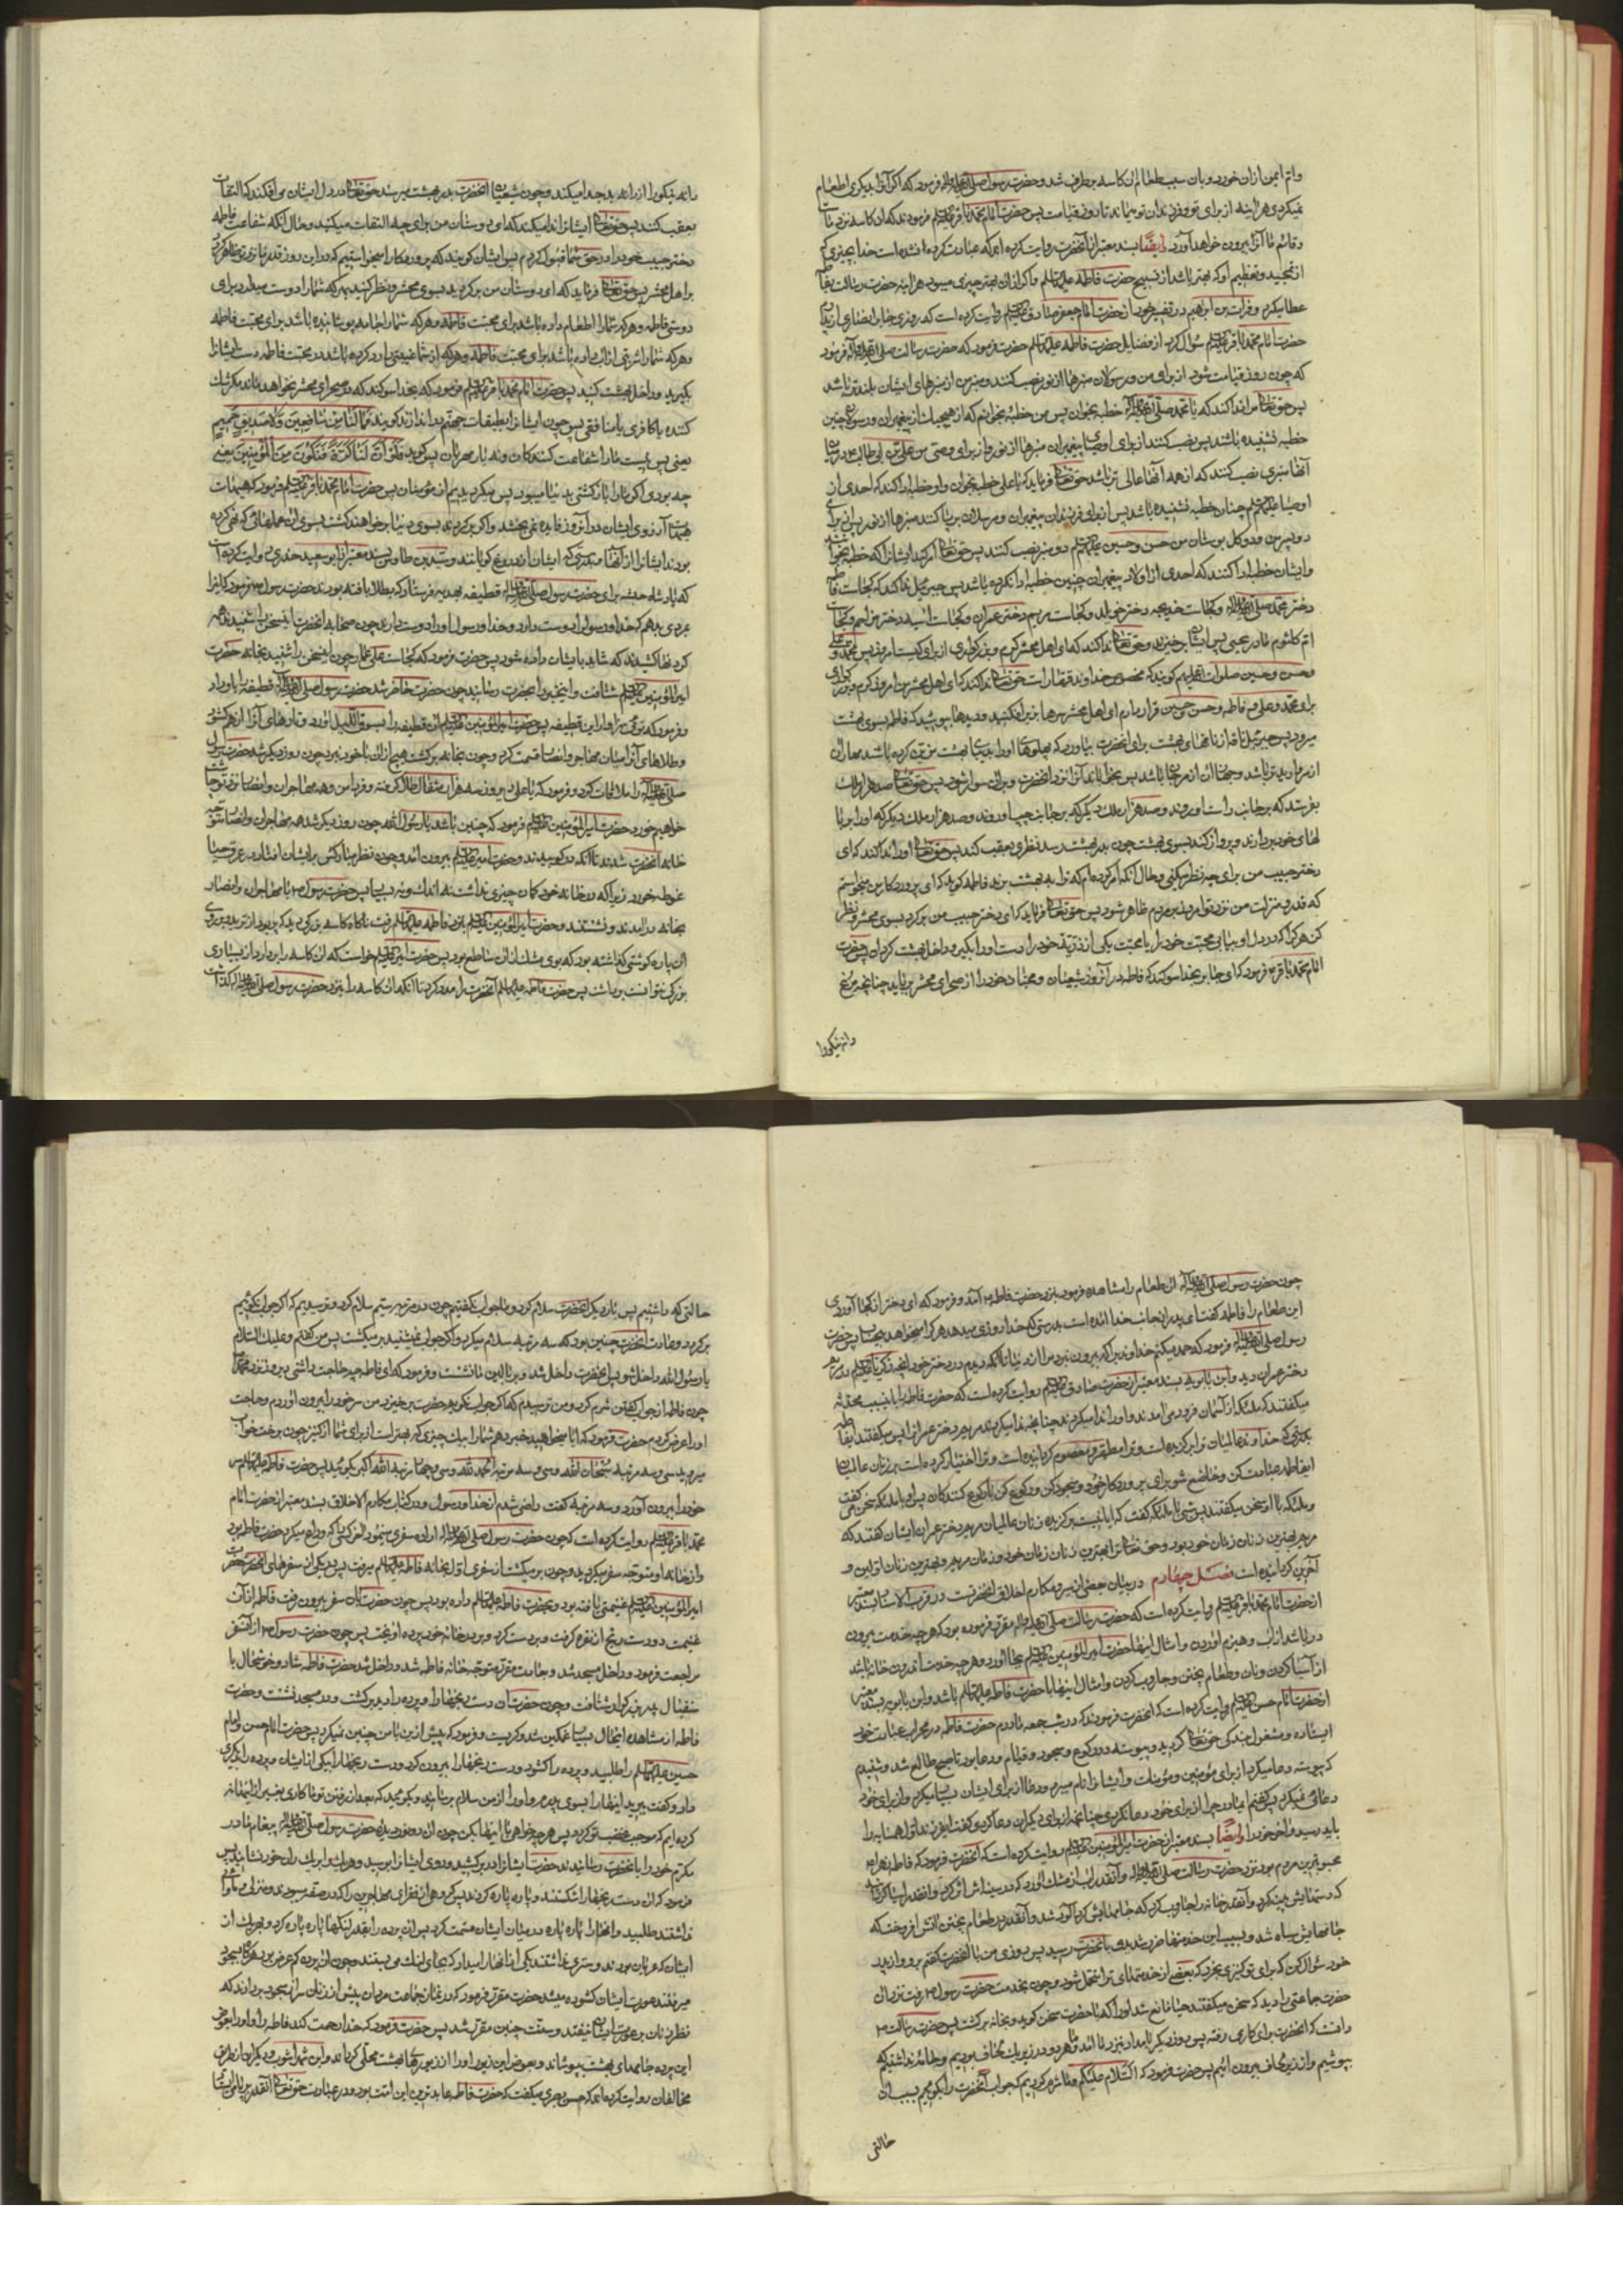 و ام ایمن از آن خورد و بان سبب طعام از آن کاسه برطرف شد و حضرت رسول صلی الله علیه و آله فرمود که اگر آنرا بدیگری اطعام
نمیکردی هر اینه از برای تو و فرزندان تو میماند تا روز قیامت پس حضرت امام محمد باقر علیه السلم فرمودند که آن کاسه نزد ماست
و قائم ما آنرا بیرون خواهد آورد ایضًا بسند معتبر از آنحضرت روایت کرده اند که عبادت کرده نشده است خدا بچیزی که
از تمجید و تعظیم او که بهتر باشد از تسبیح حضرت فاطمه علیها السلم و اگر از آن بهتر چیزی میبود هر اینه حضرت رسالت بفاطمه
عطا میکرد و فرات بن ابراهیم در تفسیر خود از حضرت امام جعفر صادق علیه السلم روایت کرده است که روزی جابر انصاری از
حضرت امام محمد باقر علیه السلم سؤال کرد از فضایل حضرت فاطمه علیها السلم حضرت فرمود که حضرت رسالت صلی الله علیه و آله فرمود
که چون روز قیامت شود از برای من و رسولان منبرها از نور نصب کنند و منبر من از منبرهای ایشان بلندتر باشد
پس حق تعالی مرا ندا کند که یا محمد صلی الله علیه و آله خطبه بخوان پس من خطبه بخوانم که از هیچیک از پیغمبران و رسولان چنین
خطبه نشنیده باشند پس نصب کنند از برای اوصیای پیغمبران منبرها از نور و از برای وصی من علی بن ابی طالب در میان
آنها منبری نصب کنند که از همه آنها عالی تر باشد حق تعالی فرماید که یا علی خطبه بخوان و او خطبه ادا کند که احدی از
اوصیا علیهم السلم چنان خطبه نشنیده باشد پس از برای فرزندان پیغمبران و مرسلان برپا کنند منبرها از نور پس از برای
دو پسر من و دو گل بوستان من حسن و حسین علیهما السلم دو منبر نصب کنند پس حق تعالی امر کند ایشانرا که خطبه بخوانید
و ایشان خطبه ادا کنند که احدی از اولاد پیغمبران چنین خطبه ادا نکرده باشد پس جبرئیل ندا کند که کجاست فاطمه
دختر محمد صلی الله علیه و آله و کجاست خدیجه دختر خویلد و کجاست مریم دختر عمران و کجاست آسیه دختر مزاحم و کجاست
ام کلثوم مادر یحیی پس ایشان برخیزند و حق تعالی ندا کند که ای اهل محشر کرم و بزرگواری از برای کیست امروز پس محمد و علی
و حسن و حسین صلوات الله علیهم گویند که مخصوص خداوند قهار است حق تعالی ندا کند که ای اهل محشر من امروز کرم و بزرگواری
برای محمد و علی و فاطمه و حسن و حسین قرار دادم ای اهل محشر سرها بزیر افکنید و دیدها بپوشید که فاطمه بسوی بهشت
میرود پس جبرئیل ناقه از ناقهای بهشت برای آنحضرت بیاورد که پهلوهای او را بدیبای بهشت مزین کرده باشد مهار آن
از مروارید تر باشد و جهاز آن از مرجان باشد پس بخواباند آنرا نزد آنحضرت و بر آن سوار شود پس حق تعالی صد هزار ملک
بفرستد که بر جانب راست او روند و صد هزار ملک دیگر که بر جانب چپ او روند و صد هزار ملک دیگر که او را بر بالهای
خود بردارند و پرواز کند بسوی بهشت چون بدر بهشت رسد نظری بعقب کند پس حق تعالی او را ندا کند که ای
دختر حبیب من برای چه نظر میکنی و حال آنکه امر کرده ام که ترا به بهشت برند فاطمه گوید که ای پروردگار من میخواستم
که قدر و منزلت من نزد تو امروز بر مردم ظاهر شود پس حق تعالی فرماید که ای دختر حبیب من برگرد بسوی محشر و نظر
کن هر که را در دل او بیابی محبت خود را یا محبت یکی از ذریت خود را دست او را بگیر و داخل بهشت گردان پس حضرت
امام محمد باقر فرمود که ای جابر بخدا سوگند که فاطمه در آنروز شیعیان و محبان خود را از صحرای محشر برباید چنانچه مرغ
دانه نیکو را
دانه نیکو را از دانه بد جدا میکند و چون شیعیان آنحضرت بدر بهشت میرسند حق تعالی در دل ایشان می افکند که التفات
بعقب کنند پس حق تعالی ایشانرا ندا میکند که ای دوستان من برای چه التفات میکنید و حال آنکه شفاعت فاطمه
دختر حبیب خود را در حق شما قبول کردم پس ایشان گویند که پروردگارا میخواستیم که در این روز قدر ما نزد تو ظاهر گردد
بر اهل محشر پس حق تعالی فرماید که ای دوستان من برگردید بسوی محشر و نظر کنید بهر که شما را دوست میدارد برای
دوستی فاطمه و هر که شما را اطعام داده باشد برای محبت فاطمه و هر که شما را جامه پوشانیده باشد برای محبت فاطمه
و هر که شما را شربتی از آب داده باشد برای محبت فاطمه و هر که از شما غیبتی را رد کرده باشد در محبت فاطمه دست ایشانرا
بگیرید و داخل بهشت کنید پس حضرت امام محمد باقر علیه السلم فرمود که بخدا سوگند که در صحرای محشر نخواهد ماند مگر شک
کننده یا کافری یا منافقی پس چون ایشانرا بطبقات جهنم در اندازند گویند فَمَا لَنَا مِنْ شَافِعِینَ وَلَا صَدِیقٍ حَمِیمٍ
یعنی پس نیست ما را شفاعت کنندگان و نه یار مهربان پس گویند فَلَوْ أَنَّ لَنَا کَرَّةً فَنَکُونَ مِنَ الْمُؤْمِنِینَ یعنی
چه بودی اگر ما را بازگشتی بدنیا میبود پس میگردیدیم از مؤمنان پس حضرت امام محمد باقر علیه السلم فرمود که هیهات
هیهات آرزوی ایشان در آنروز فایده نمی بخشد و اگر برگردند بسوی دنیا برخواهند گشت بسوی آن عملهائی که نهی کرده
بودند ایشانرا از آنها بدرستی که ایشان از دروغ گویانند و سید بن طاوس بسند معتبر از ابو سعید خدری روایت کرده است
که پادشاه حبشه برای حضرت رسول صلی الله علیه و آله قطیفه بهدیه فرستاد که بطلا بافته بودند حضرت رسول ص فرمود که اینرا
بمردی بدهم که خدا و رسول را دوست دارد و خدا و رسول او را دوست دارند چون صحابه آنحضرت این سخن را شنیدند همه
گردنها کشیدند که شاید بایشان داده شود پس حضرت فرمود که کجاست علی عمار چون این سخن را شنید بخانه حضرت
امیر المؤمنین علیه السلم شتافت و این خبر را بحضرت رسانید چون حضرت حاضر شد حضرت رسول صلی الله علیه و آله قطیفه را باو داد
و فرمود که توئی سزاوار این قطیفه پس حضرت امیر المؤمنین علیه السلم آن قطیفه را بسوق اللیل آورد و تارهای آنرا از هم گشود
و طلاهای آنرا میان مهاجر و انصار قسمت کرد و چون بخانه برگشت هیچ از آن با خود نبرد چون روز دیگر شد حضرت رسول
صلی الله علیه و آله را ملاقات کرد و فرمود که یا علی دیروز سه هزار مثقال طلا گرفته و فردا من و همه مهاجران و انصار نزد تو چاشت
خواهیم خورد حضرت امیر المؤمنین علیه السلم فرمود که چنین باشد یا رسول الله چون روز دیگر شد همه مهاجران و انصار متوجه
خانه آنحضرت شدند تا آنکه در کوبیدند و حضرت امیر علیه السلم بیرون آمد و چون نظر مبارکش بر ایشان افتاد در عرق حیا
غوطه خورد زیرا که در خانه خود گمان چیزی نداشت نه اندک و نه بسیار پس حضرت رسول ص با مهاجران و انصار
بخانه درآمدند و نشستند و حضرت امیر المؤمنین علیه السلم بنزد فاطمه علیها السلم رفت ناگاه کاسه بزرگی دید که پر بود از ترید و بر روی
آن پاره گوشتی گذاشته بود که بوی مشک از آن ساطع بود پس حضرت امیر علیه السلم خواست که آن کاسه را بردارد از بسیاری
بزرگی نتوانست برداشت پس حضرت فاطمه علیها السلم آنحضرت را مدد کرد تا آنکه آن کاسه را بنزد حضرت رسول صلی الله علیه و آله گذاشت
چون حضرت رسول صلی الله علیه و آله آن طعام را مشاهده فرمود بنزد حضرت فاطمه ع آمد و فرمود که ای دختر از کجا آوردی
این طعام را فاطمه گفت ای پدر از جانب خدا آمده است بدرستی که خدا روزی میدهد هر که را میخواهد بیحساب پس حضرت
رسول صلی الله علیه و آله فرمود که حمد میکنم خداوندیرا که بیرون نبرد مرا از دنیا تا آنکه دیدم در دختر خود آنچه زکریا علیه السلم در مریم
دختر عمران دید و ابن بابویه بسند معتبر از حضرت صادق علیه السلم روایت کرده است که حضرت فاطمه را باینسبب محدثه
میگفتند که ملائکه از آسمان فرود می آمدند و او را ندا میکردند چنانچه ندا میکردند مریم دختر عمران را پس میگفتند ایفاطمه
بدرستی که خداوند عالمیان ترا برگزیده است و ترا مطهر و معصوم گردانیده است و ترا اختیار کرده است بر زنان عالمیان
ایفاطمه عبادت کن و خاضع شو برای پروردگار خود و سجود کن و رکوع کن با رکوع کنندگان پس او با ملائکه سخن می گفت
و ملائکه با او سخن میگفتند پس شبی با ملائکه گفت که آیا نیست برگزیده زنان عالمیان مریم دختر عمران ایشان گفتند که
مریم بهترین زنان زمان خود بود و حق تعالی ترا بهترین زنان زمان خود و زمان مریم و بهترین زنان اولین و
آخرین گردانیده است فصل چهارم در بیان بعضی از سیر و مکارم اخلاق آنحضرت است در قرب الاسناد بسند معتبر
از حضرت امام محمد باقر علیه السلم روایت کرده است که حضرت رسالت صلی الله علیه و آله مقرر فرموده بود که هر چه خدمت بیرون
در باشد از آب و هیزم آوردن و امثال اینها حضرت امیر المؤمنین علیه السلم بجا آورد و هر چه خدمت اندرون خانه باشد
از آسیا کردن و نان و طعام پختن و جاروب کردن و امثال اینها با حضرت فاطمه علیها السلم باشد و ابن بابویه بسند معتبر
از حضرت امام حسن علیه السلم روایت کرده است که آنحضرت فرمودند که در شب جمعه مادرم حضرت فاطمه در محراب عبادت خود
ایستاده و مشغول بندگی حق تعالی گردید و پیوسته در رکوع و سجود و قیام و دعا بود تا صبح طالع شد و شنیدم
که پیوسته دعا میکرد از برای مؤمنین و مؤمنات و ایشانرا نام میبرد و دعا از برای ایشان بسیار میکرد و از برای خود
دعائی نمیکرد پس گفتم ای مادر چرا از برای خود دعا نکردی چنانچه از برای دیگران دعا کردی گفت ایفرزند اول همسایه را
باید رسید و آخر خود را وایضًا بسند معتبر از حضرت امیر المؤمنین علیه السلم روایت کرده است که آنحضرت فرمود که فاطمه زهرا
محبوبترین مردم بود نزد حضرت رسالت صلی الله علیه و آله و آنقدر آب از مشک آورد که در سینه اش اثر کرد و آنقدر آسیا گردانید
که دستهایش پینه کرد و آنقدر خانه را جاروب کرد که جامهایش گردآلود شد و آنقدر در طعام پختن آتش افروخت که
جامهایش سیاه شد و بسبب این خدمتها ضرر شدید بآنحضرت رسید پس روزی من با آنحضرت گفتم برو و از پدر
خود سؤال کن که برای تو کنیزی بخرد که بعضی از خدمتهای ترا متحمل شود و چون بخدمت حضرت رسول ص رفت نزد آن
حضرت جماعتی را دید که سخن میگفتند حیا مانع شد او را که با حضرت سخن گوید و بخانه برگشت پس حضرت رسالت ص
دانست که آنحضرت برای کاری رفته پس روز دیگر بامداد بنزد ما آمد و ما هر دو در زیر یک لحاف بودیم و جامه نداشتیم که
بپوشیم و از زیر لحاف بیرون آئیم پس حضرت فرمود که السَّلام علیکم و ما شرم کردیم که جواب آنحضرت را بگوئیم بسبب آن
حالتی
حالتی که داشتیم پس بار دیگر آنحضرت سلام کرد و ما جواب نگفتیم چون در مرتبه سیم سلام کرد و ترسیدیم که اگر جواب نگوئیم
برگردد و عادت آنحضرت چنین بود که سه مرتبه سلام میکرد و اگر جواب نمیشنید برمیگشت پس من گفتم و علیک السلام
یا رسول الله داخل شو پس آنحضرت داخل شد و بر بالین ما نشست و فرمود که ای فاطمه چه حاجت داشتی دیروز نزد محمد
چون فاطمه از جواب گفتن شرم کرد و من ترسیدم که اگر جواب نگوید حضرت برخیزد من سر خود را بیرون آوردم و حاجت
او را عرض کردم حضرت فرمود که آیا میخواهید خبر دهم شما را بیک چیزی که بهتر است از برای شما از کنیز چون برخت خواب
میروید سی و سه مرتبه سبحان الله و سی و سه مرتبه الحمد لله و سی و چهار مرتبه الله اکبر بگوئید پس حضرت فاطمه علیها السلم سر
خود را بیرون آورد و سه مرتبه گفت راضی شدم از خدا و رسول و در کتاب مکارم الاخلاق بسند معتبر از حضرت امام
محمد باقر علیه السلم روایت کرده است که چون حضرت رسول صلی الله علیه و آله اراده سفری مینمود آخر کسی را که وداع میکرد حضرت فاطمه بود
و از خانه او متوجه سفر میگردید و چون برمیگشت از سفری اول بخانه فاطمه علیها السلم میرفت پس در یکی از سفرهای آنحضرت حضرت
امیر المؤمنین علیه السلم غنیمتی یافته بود و بحضرت فاطمه علیها السلم داده بود پس چون حضرت بآن سفر بیرون رفت فاطمه از آن
غنیمت دو دست رنج از نقره گرفت و بر دست کرد و بر در خانه خود پرده آویخت پس چون حضرت رسول ص از آن سفر
مراجعت فرمود و داخل مسجد شد و بعادت مقرره متوجه خانه فاطمه شد و داخل شد حضرت فاطمه شاد و خوشحال با
ستقبال پدر بزرگوار شتافت و چون حضرت آن دست رنجها را و پرده را دید برگشت و در مسجد نشست و حضرت
فاطمه از مشاهده اینحال بسیار غمگین شد و گریست و فرمود که پیش از این با من چنین نمیکرد پس حضرت امام حسن و امام
حسین علیهما السلم را طلبید و پرده را گشود و دست رنجها را بیرون کرد و دست رنجها را بیکی از ایشان و پرده را بدیگری
داد و گفت ببرید اینها را بسوی پدرم و او را از من سلام برسانید و بگوئید که بعد از رفتن تو ما کاری بغیر از اینها نه
کرده ایم که موجب غضب تو گردد پس هر چه خواهی با اینها بکن چون آن دو نور دیده حضرت رسول صلی الله علیه و آله پیغام مادر
مکرم خود را بآنحضرت رسانیدند حضرت ایشانرا در بر کشید و روی ایشانرا بوسید و هر یک را بر یک ران خود نشانید پس
فرمود که آن دست رنجها را شکستند و پاره پاره کردند پس گروهی از فقرای مهاجرین را که در صفه میبودند و منزلی و مأوا
نداشتند طلبید و آنها را پاره پاره در میان ایشان قسمت کرد پس آن پرده را بقدر لنگها پاره پاره کرد و بهر یک از
ایشان که عریان بودند و ستری نداشتند یکی از آنها را میداد که بجای لنگ می بستند و چون آن پرده کم عرض بود هرگاه بسجود
میرفتند عورت ایشان گشوده میشد حضرت مقرر فرمود که در نماز جماعت مردان پیش از زنان سر از سجود بردارند که
نظر زنان بر عورت ایشان نیفتد و سنت چنین مقرر شد پس حضرت فرمود که خدا رحمت کند فاطمه را و او را بعوض
این پرده جامهای بهشت بپوشاند و بعوض این زیور او را از زیورهای بهشت محلی گرداند و ابن شهر آشوب و دیگران از طریق
مخالفان روایت کرده اند که حسن بصری میگفت که حضرت فاطمه عابدترین این امت بود و در عبادت حق تعالی آنقدر بر پا می ایستاد